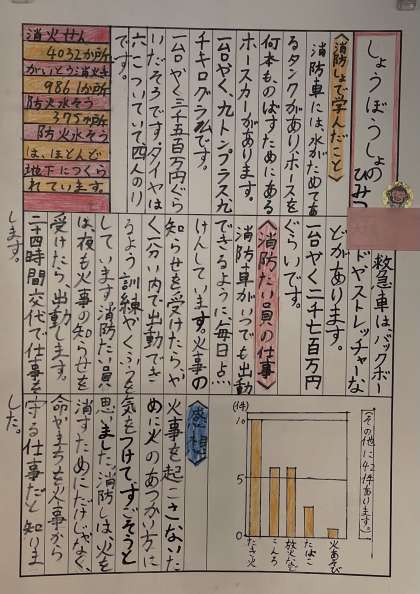 しょうぼうしょの
ひみつ
〈消防しょで学んだこと〉
消防車には、水がためてあ
るタンクがあり、ホースを
何本ものばすためにある
ホースカーがあります。
一台やく、九トンプラス九
チキログラムです。
一台やく三千五百万円ぐら
いだそうです。タイヤは
六こついていて四人のり
です。
消火せん
4032か所
がいとう消火き
9861か所
防火水そう
375か所
防火水そう
は、ほとんど
地下につくら
れています。
救急車は、バックボー
ドやストレッチャーな
どがあります。
一台やく二千七百万円
ぐらいです。
〈消防たい員の仕事〉
消防車がいつでも出動
できるように、毎日点
けんしています。火事の
知らせを受けたら、や
く一分い内で出動でき
るよう訓練やくふうを
しています。消防たい員
は、夜も火事の知らせを
受けたら、出動します。
二十四時間交代で仕事を
します。
(その他に42件あります。)
(件)
10
5
0
たき火
こんろ
放火など
たばこ
火あそび
〈感想〉
火事を起こさないた
めに火のあつかい方に
気をつけて、すごそうと
思いました。消防しは、火を
消すためにだけじゃなく、
命やまちを火事から
守る仕事だと知りま
した。